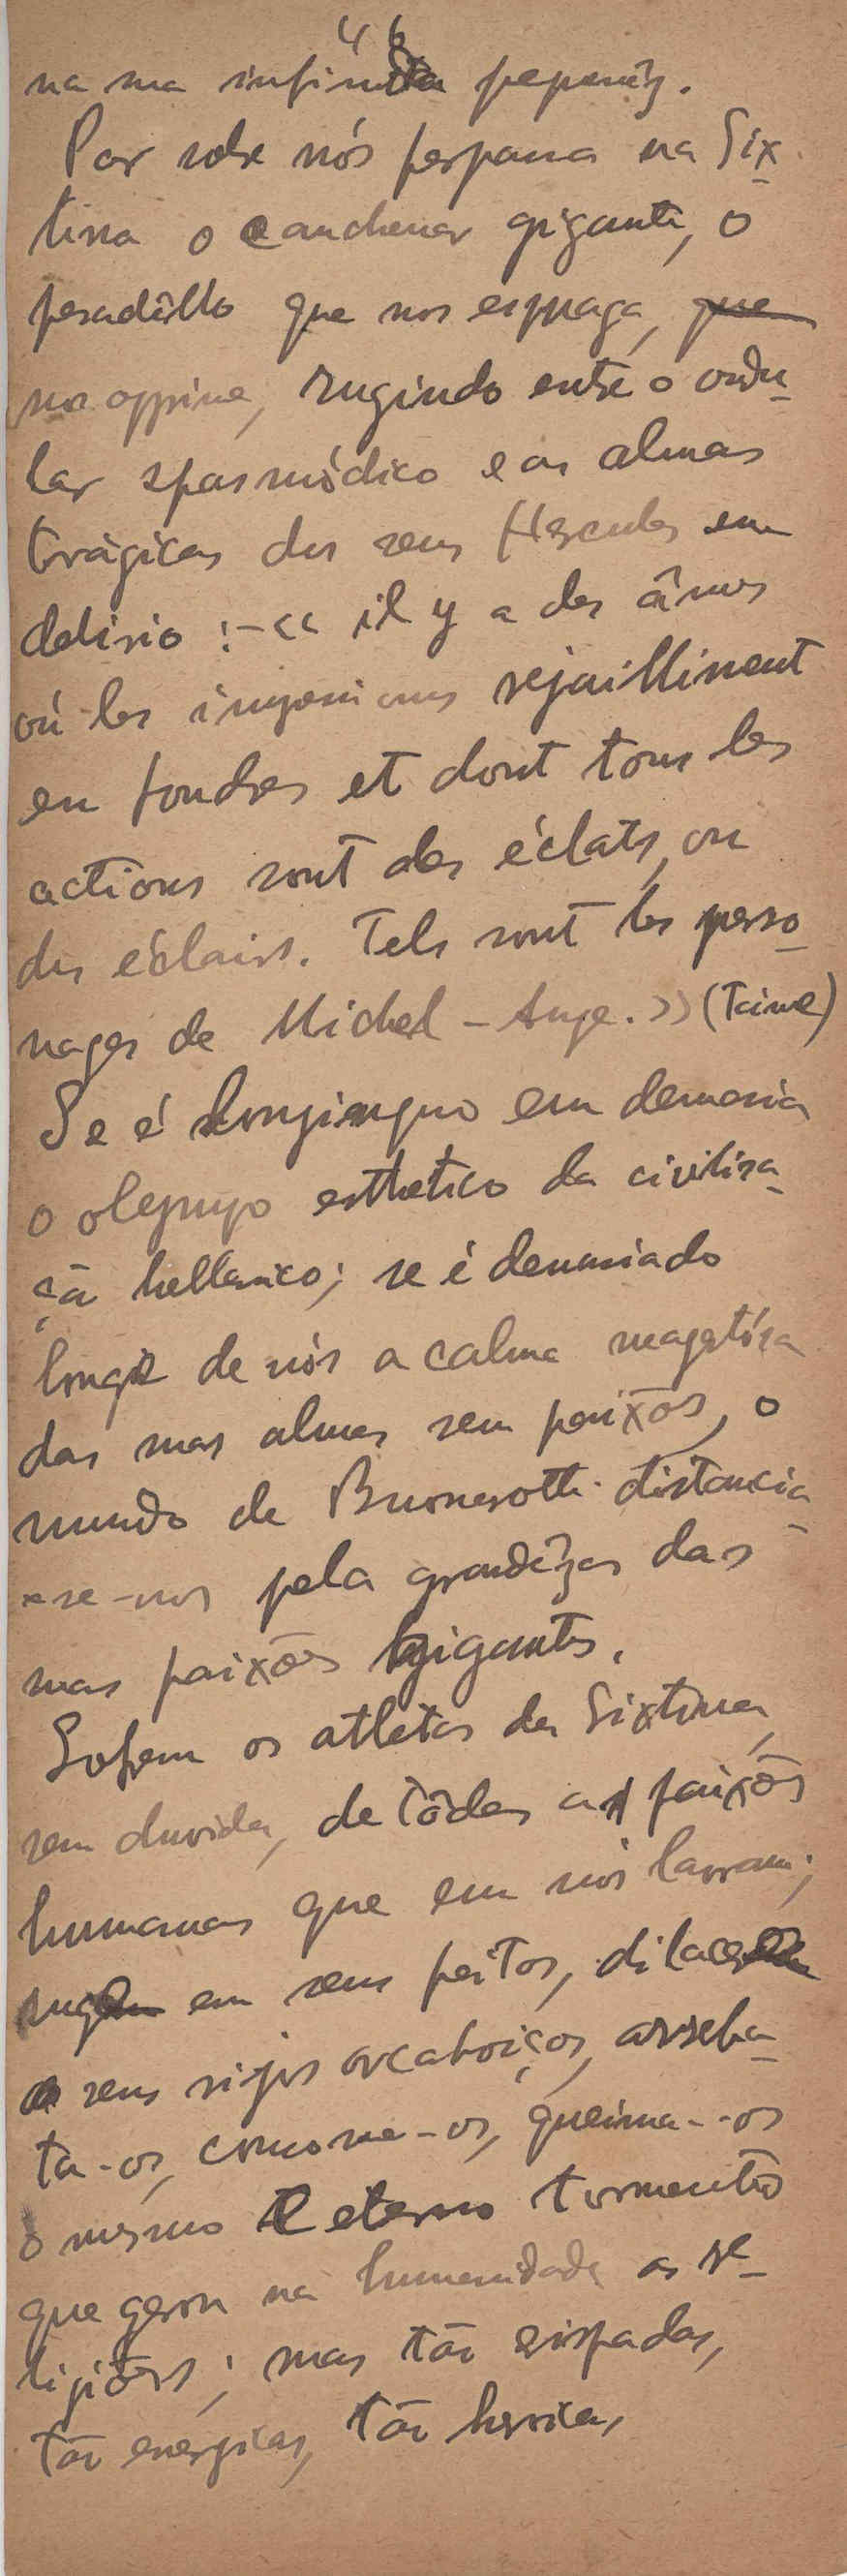 46
na sua infinita pequenêz.
Por sobre nós perpassa na Six-
tina o cauchemar gigante, o
pesadêllo que nos esmaga,
nos opprime, rugindo entre o ondu-
lar espasmódico e as almas
trágicas dos seus Hercules em
delirio :-«il y a des âmes
où les impressions rejaillissent
en foudres et dont tous les
actions sont des éclats, ou
des éclairs. Tels sont les perso-
nages de Michel-Ange.» (Taine)
Se é longinquo em demasia
o olympo esthetico da civilisa-
çã hellenico; se é demasiado
longe de nós a calma magestósa
das suas almas sem paixões, o
mundo de Buonarotti distancia-
-se-nos pela grandêza das
suas paixões gigantes.
Sofrem os atletas da Sixtina,
sem duvida, de tôdas as paixões
humanas que em nós lavram;
em seus peitos,
seus rijos arcaboiços, arreba-
ta-os, consome-os, queima-os
o mesmo eterno tormento
que gerou na humanidade as re-
ligiões; mas tão crispadas,
tão energicas, tão heroicas,